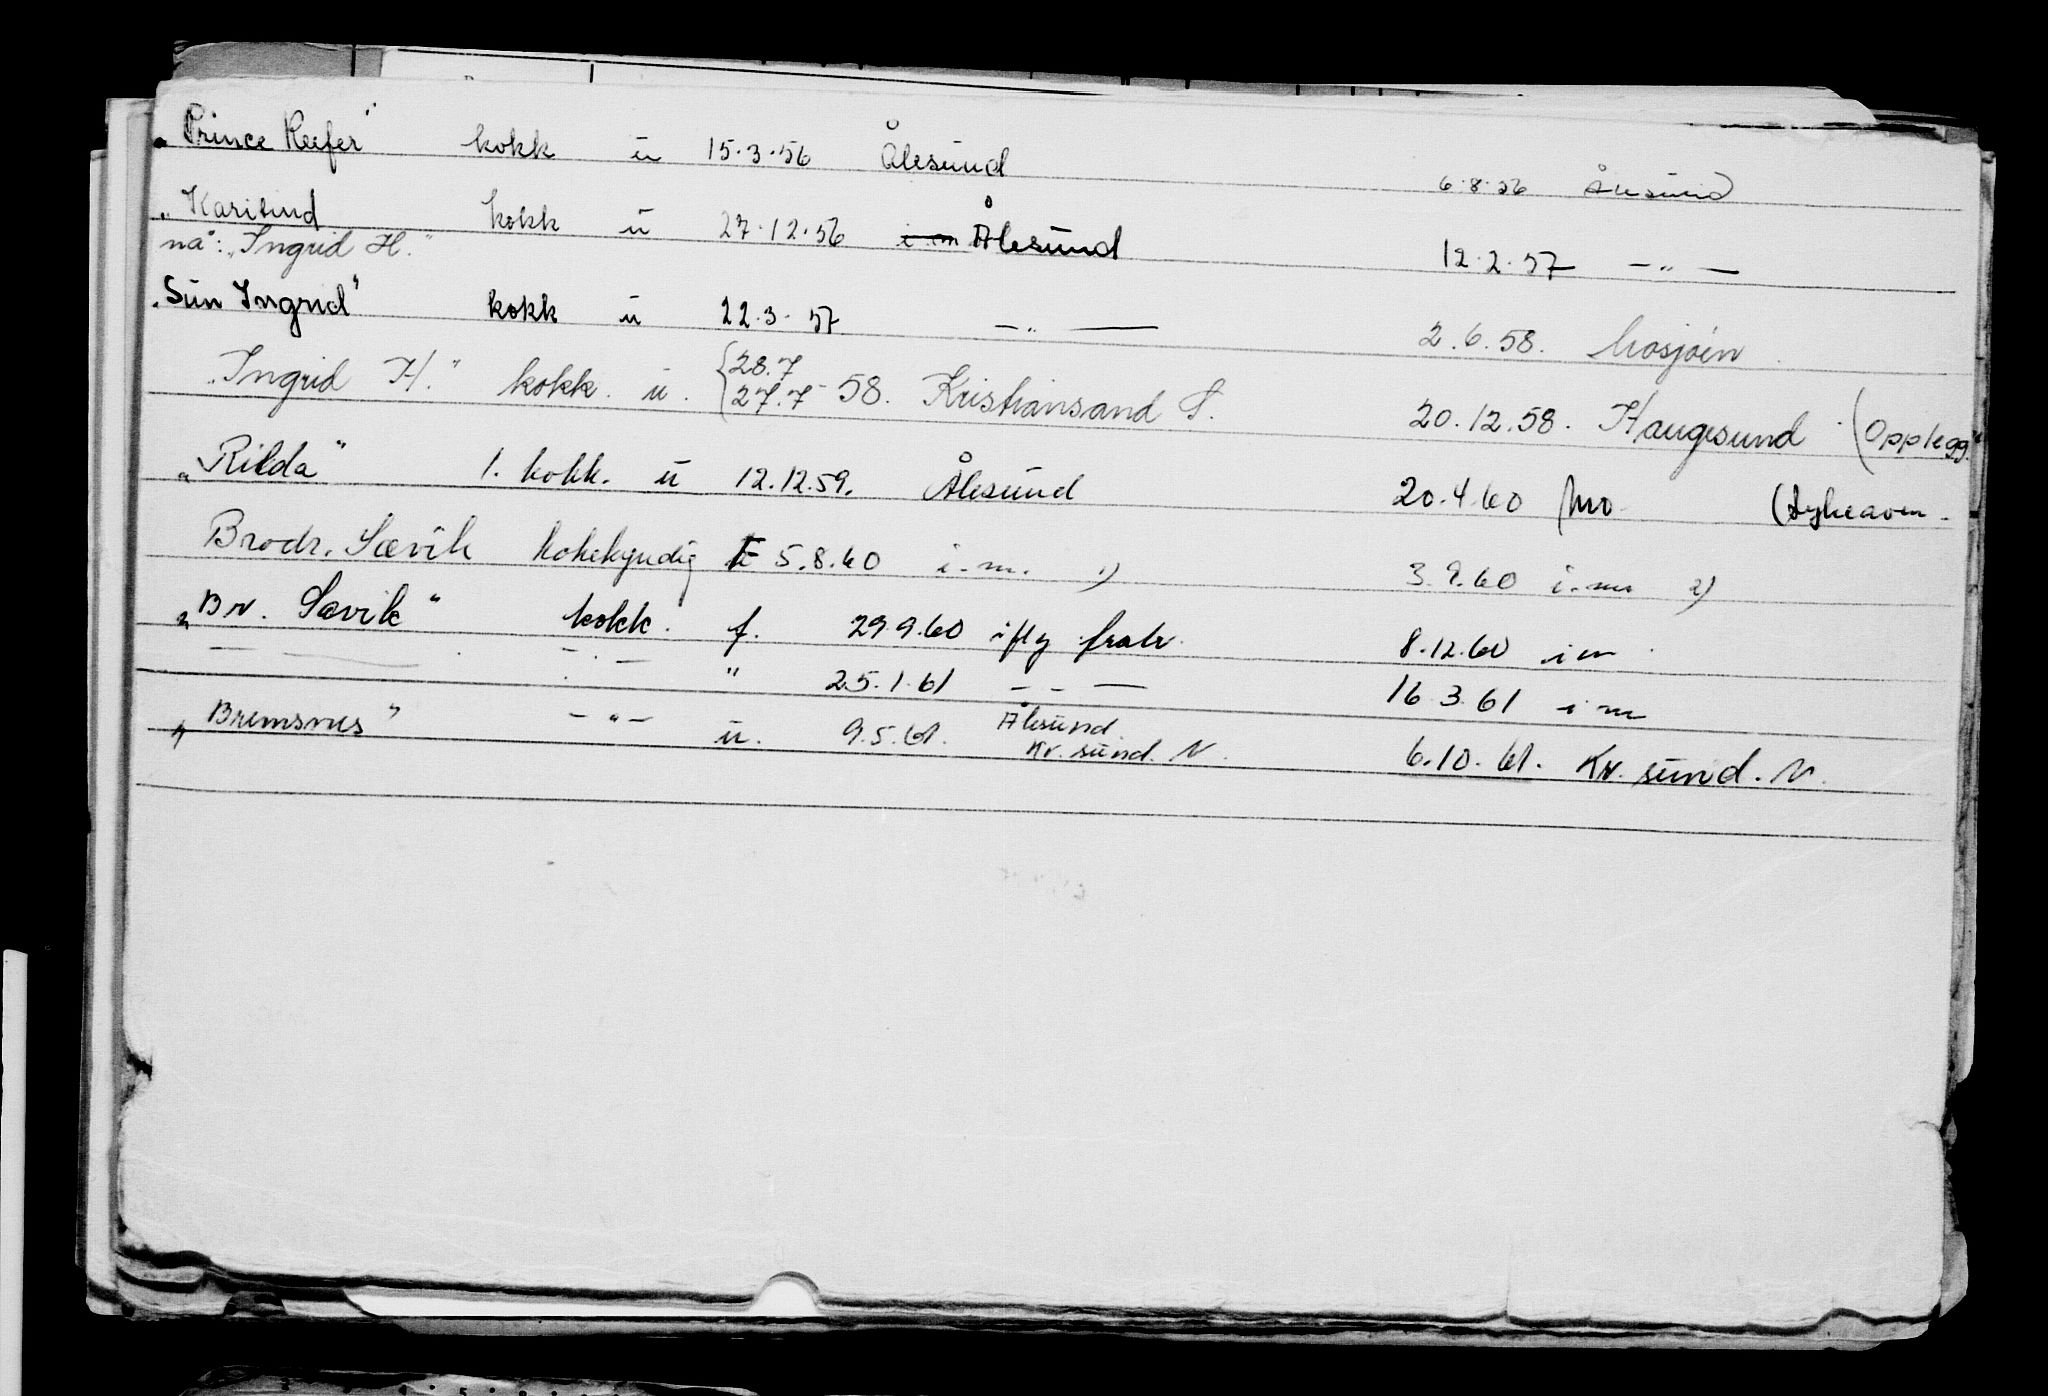 „Prince Reefer" kokk u 15.3.56 Ålesund 6.8.56 Ålesund
„Karisund kokk u 27.12.56 i m Ålesund 12.2.57 — „ —
nå: „Ingrid H."
„Sun Ingrid" kokk u 22.3.57 — „ — 2.6.58. Mosjøen
„Ingrid H." kokk. u. {28.7 27.7 - 58. Kristiansand S. 20.12.58. Haugesund (Opplegg.
„Rilda" 1. kokk. u 12.12.59. Ålesund 20.4.60 Mo
Brodr. Sævik kokekyndig F 5.8.60 i.m. 1) 3.9.60 i.m 2)
„Br. Sævik" kokk. f. 29.9.60 iflg frakr. 8.12.60 i m
— — . — " 25.1.61 — - — 16.3.61 i m
„Bremsnes" — „ — u. 9.5.61. Ålesund. Kr. sund. N. 6.10.61. Kr. sund. N.